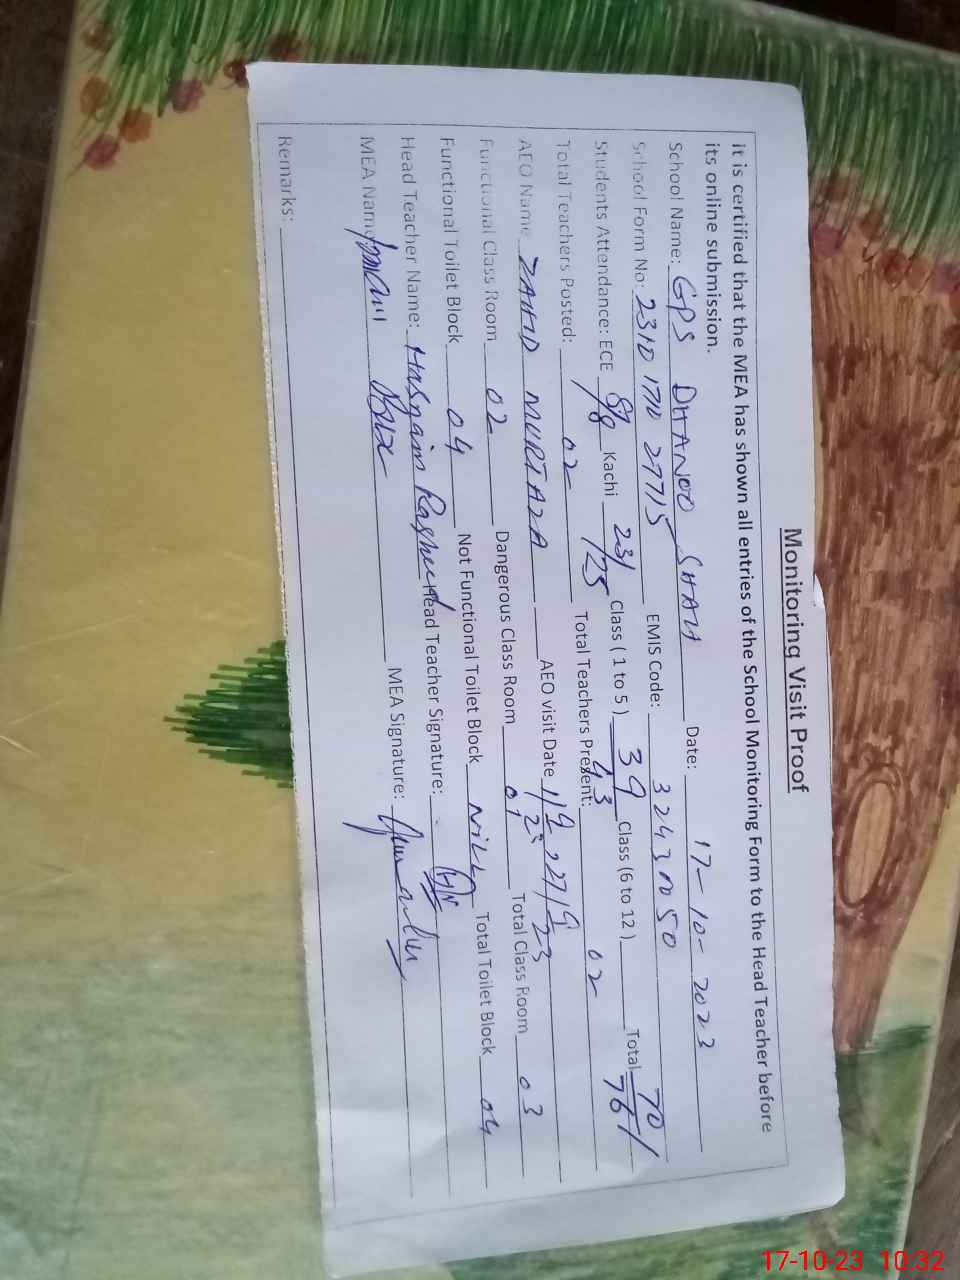 Monitoring Visit Proof
it is certified that the MEA has shown all entries of the School Monitoring Form to the Head Teacher before
its online submission.
School Name: GPS DHANOO SHAH Date: 17-10-2023
School Form No: 2310 1710 27715 EMIS Code: 32430050
Students Attendance: ECE 8/8 Kachi 23/25 Class ( 1 to 5 ) 39/43 Class (6 to 12 ) Total 70/76
Total Teachers Posted: 02 Total Teachers Present: 02
AEO Name ZAHID MURTAZA AEO visit Date
Functional Class Room 02 Dangerous Class Room 01 Total Class Room 03
Functional Toilet Block 04 Not Functional Toilet Block NILL Total Toilet Block 04
Head Teacher Name: Hasnain Rasheed Head Teacher Signature:
MEA Name Bux MEA Signature:
Remarks:
17-10-23 10:32